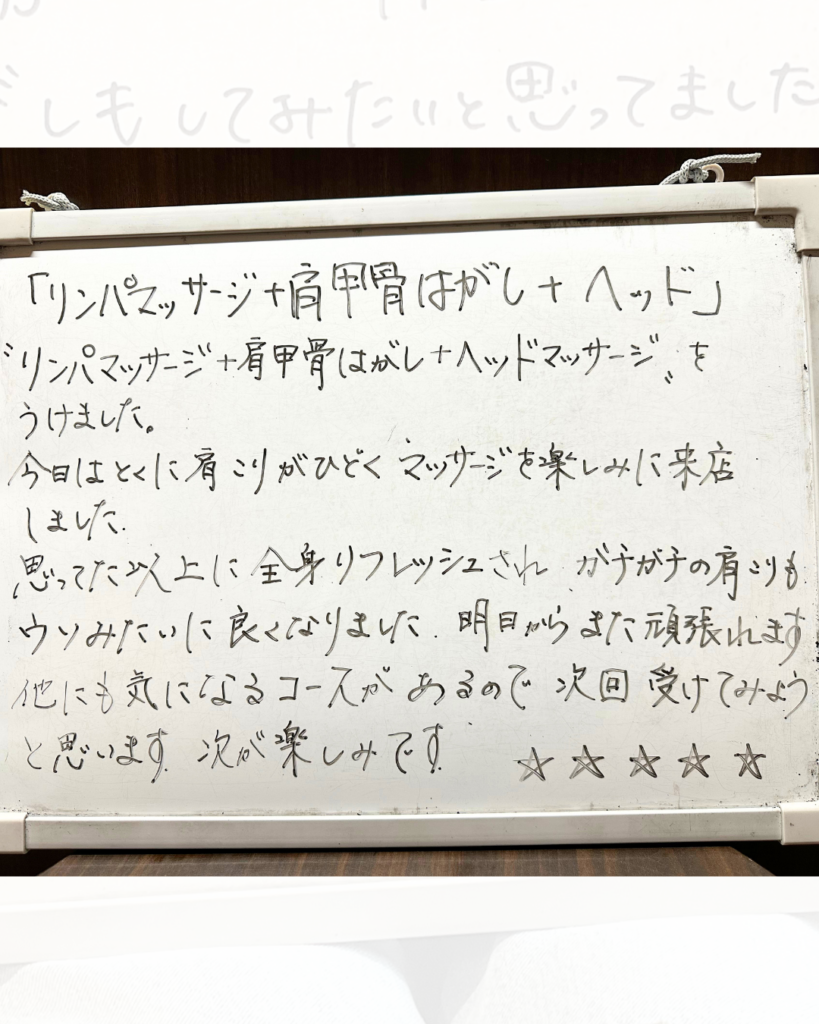 しもしてみたいと思ってました
「リンパマッサージ+肩甲骨はがし+ヘッド」
〝リンパマッサージ+肩甲骨はがし+ヘッドマッサージ〟を
うけました。
今日はとくに肩こりがひどくマッサージを楽しみに来店
しました.
思ってた以上に全身リフレッシュされ ガチガチの肩こりも
ウソみたいに良くなりました. 明日からまた頑張れます
他にも気になるコースがあるので 次回 受けてみよう
と思います. 次が楽しみです.
☆☆☆☆☆